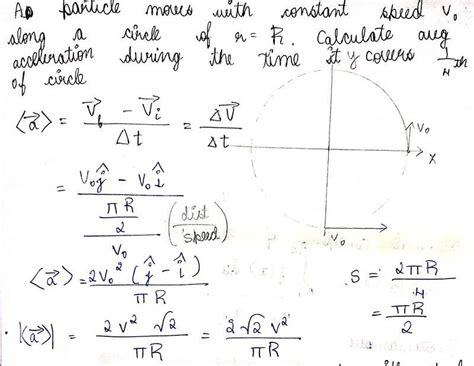 A particle moves with constant speed v₀
along a circle of r = R. Calculate avg
acceleration during the time it covers 1/4 th
of circle
⟨a⃗⟩ = (V⃗f − V⃗i)/Δt = ΔV⃗/Δt
V₀
x
= (V₀ĵ − V₀î)/((πR/2)/V₀) (dist/speed)
V₀
⟨a⃗⟩ = 2V₀²(ĵ − î)/πR
S = 2πR/4
= πR/2
|⟨a⃗⟩| = 2V²√2/πR = 2√2 V²/πR